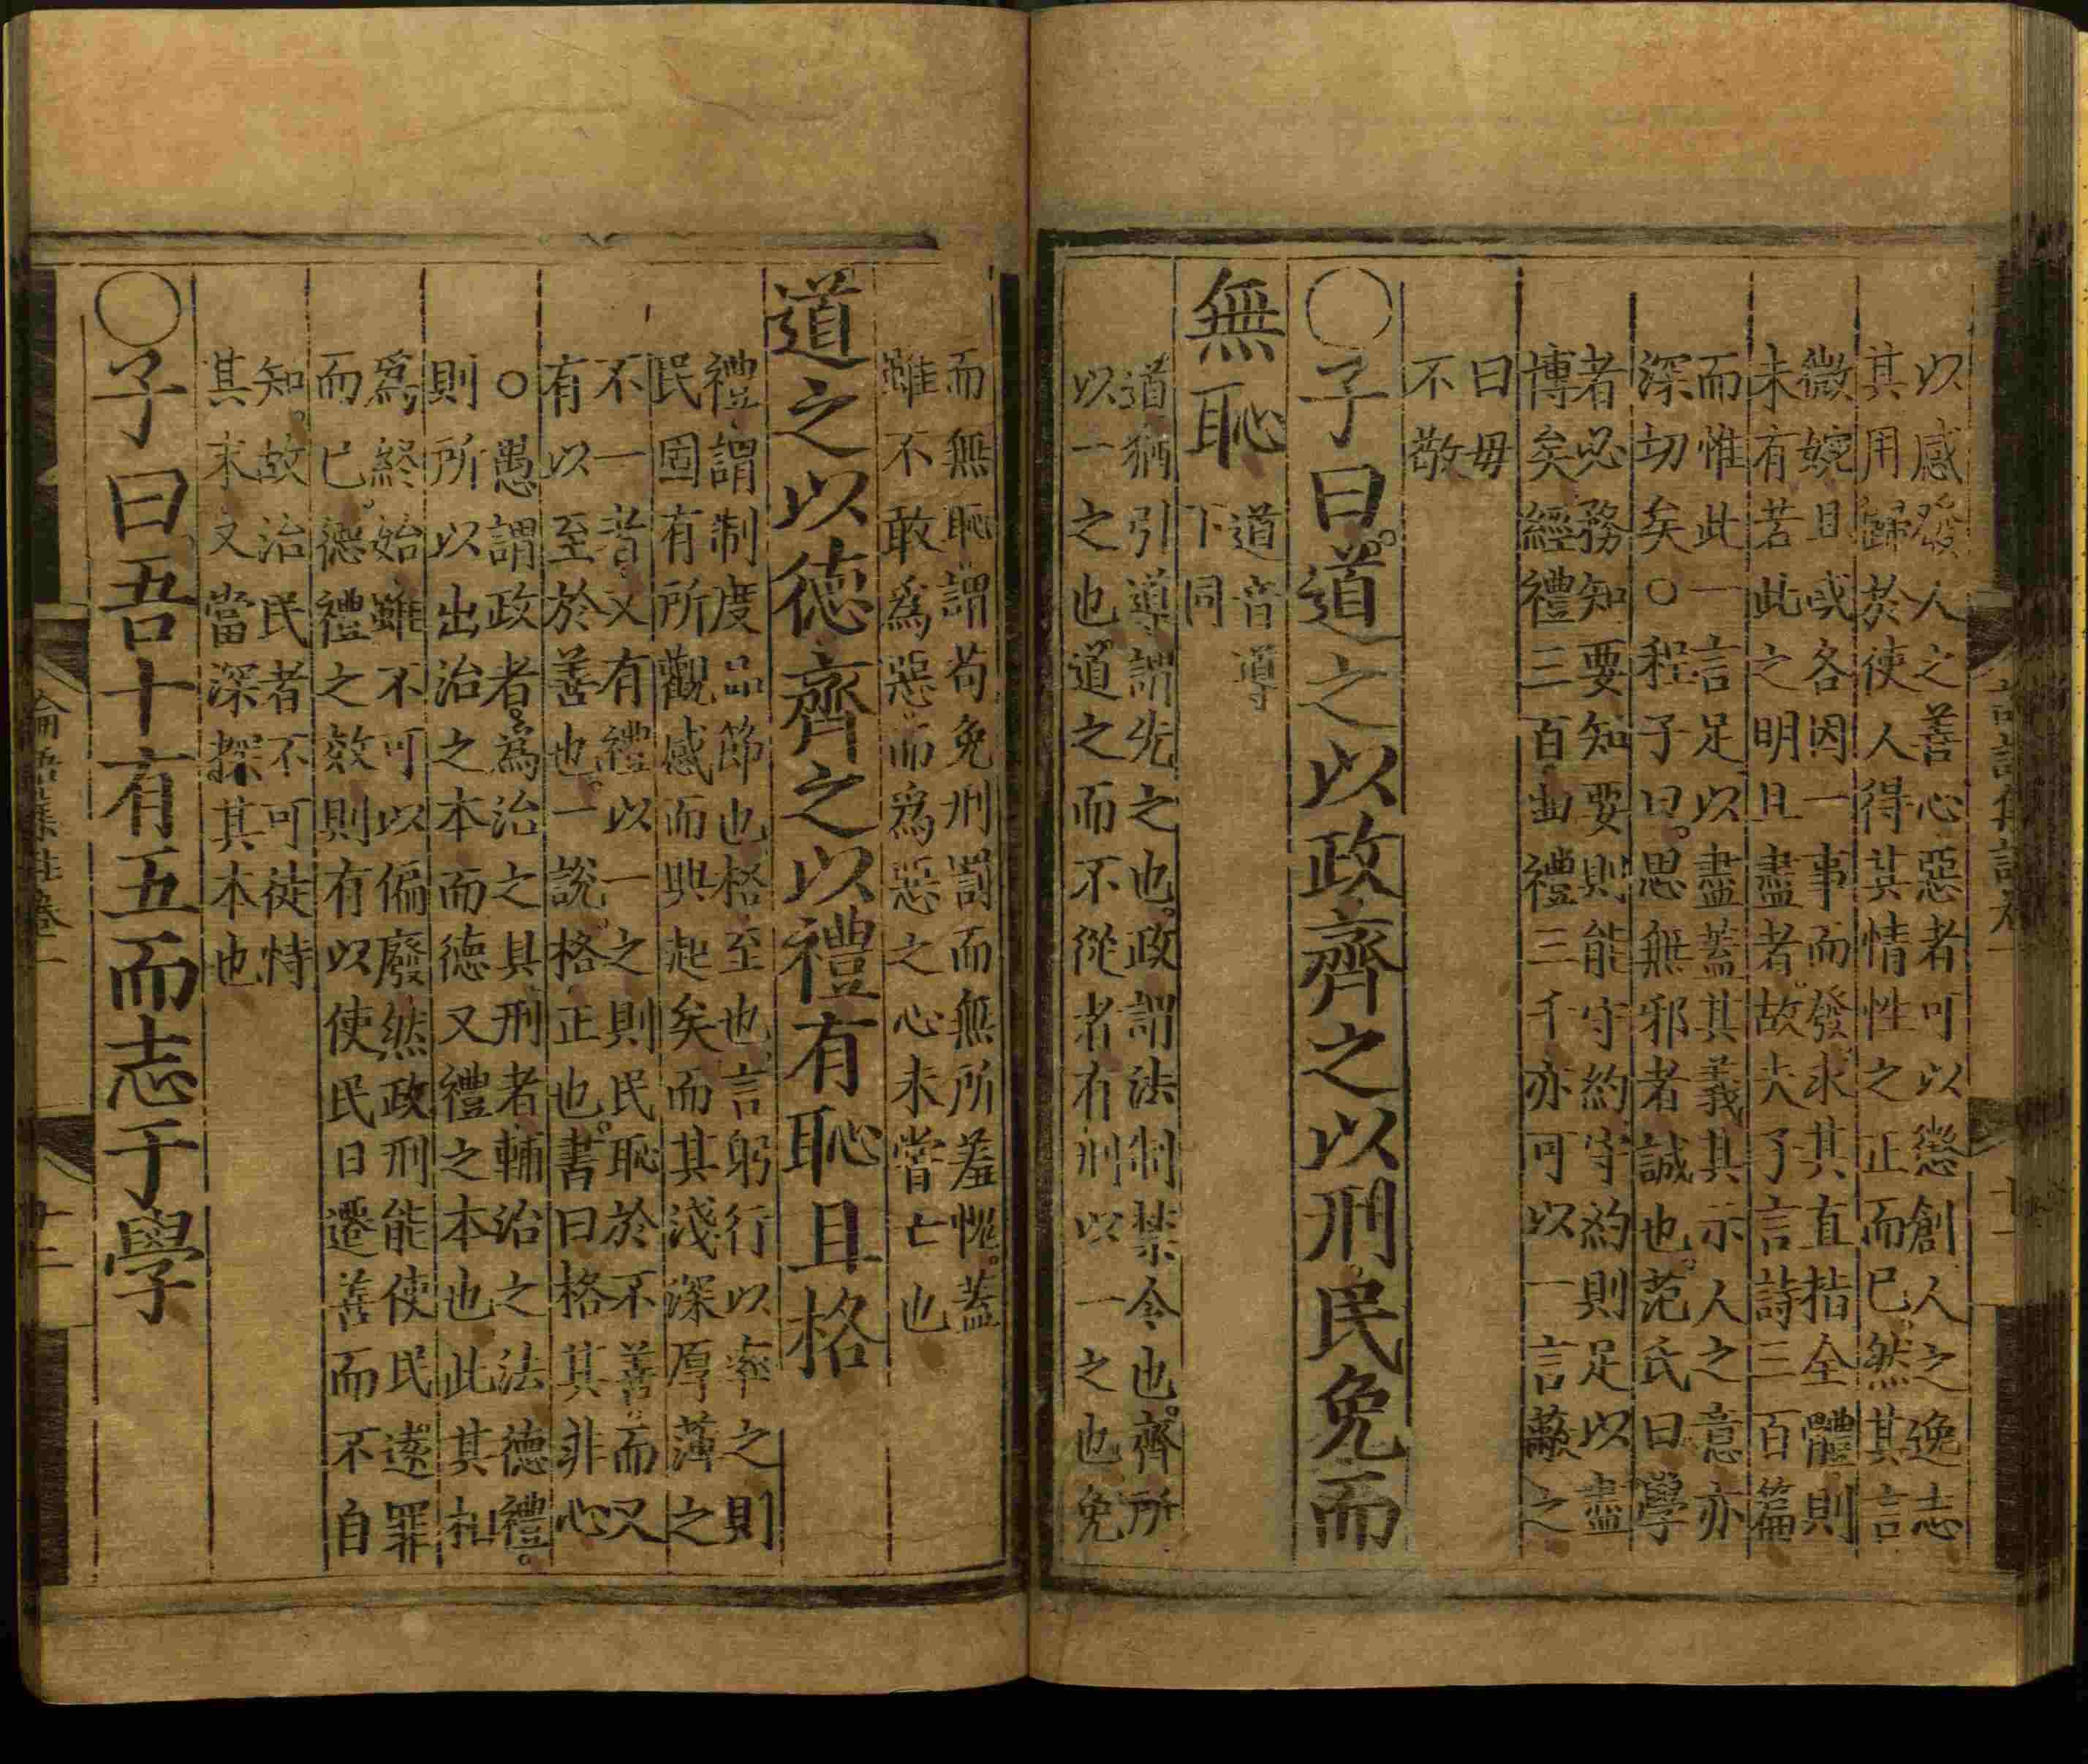 以感發人之善心惡者可以懲創人之逸志
其用歸於使人得其情性之正而已然其言
微婉且或各因一事而發求其直指全體則
未有若此之明且盡者故夫子言詩三百篇
而惟此一言足以盡蓋其義其示人之意亦
深切矣○程子曰思無邪者誠也范氏曰學
者必務知要知要則能守約守約則足以盡
博矣經禮三百曲禮三千亦可以一言蔽之
曰毋
不敬
○子曰道之以政齊之以刑民免而
無恥
道音導
下同
道猶引導謂先之也政謂法制禁令也齊所
以一之也道之而不從者有刑以一之也免
而無恥謂苟免刑罰而無所羞愧蓋
雖不敢爲惡而爲惡之心未嘗亡也
道之以德齊之以禮有恥且格
禮謂制度品節也格至也言躬行以率之則
民固有所觀感而興起矣而其淺深厚薄之
不一者又有禮以一之則民恥於不善而又
有以至於善也一說格正也書曰格其非心
○愚謂政者爲治之具刑者輔治之法德禮
則所以出治之本而德又禮之本也此其相
爲終始雖不可以偏廢然政刑能使民遠罪
而已德禮之效則有以使民日遷善而不自
知故治民者不可徒恃
其末又當深探其本也
○子曰吾十有五而志于學
論語集註卷一
十二